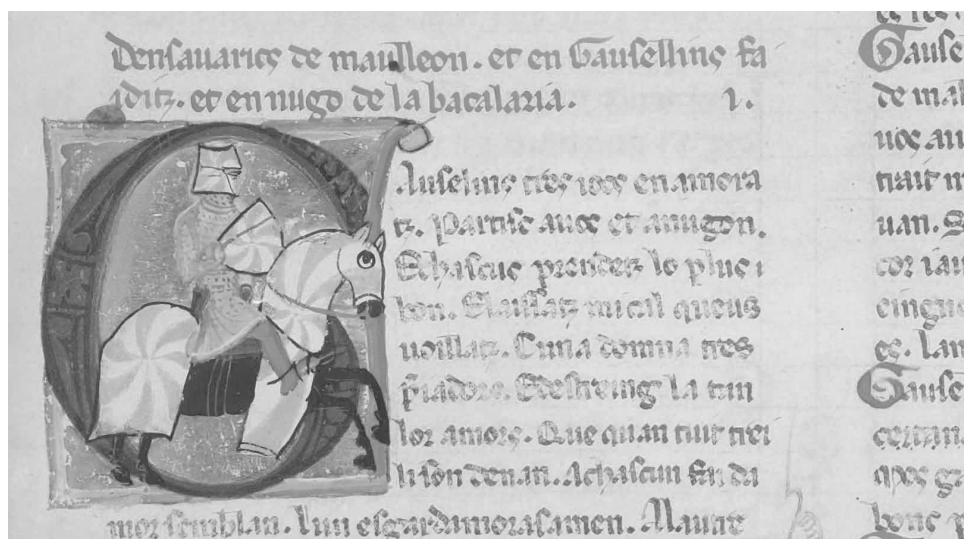 Densauarics de maulleon. et en Gausellins fa
iditz. et en nugo de la bacalaria. 1.
Auselins tres iocs en amora
tz. Partisc auos et anugon.
Echascus prendes lo plus
bon. Elaissatz mi cal queus
uoillatz. Cuna domna tres
Edestreing la tan
lor amors. Que quan tuit trei
li son denan. Achascun fai da
mor semblan. lun esgardamorosamen. Alautre
Gause
de mal
uos au
trair m
uan. S
cor iau
eingu
es. Lan
Gause
certan
bons p